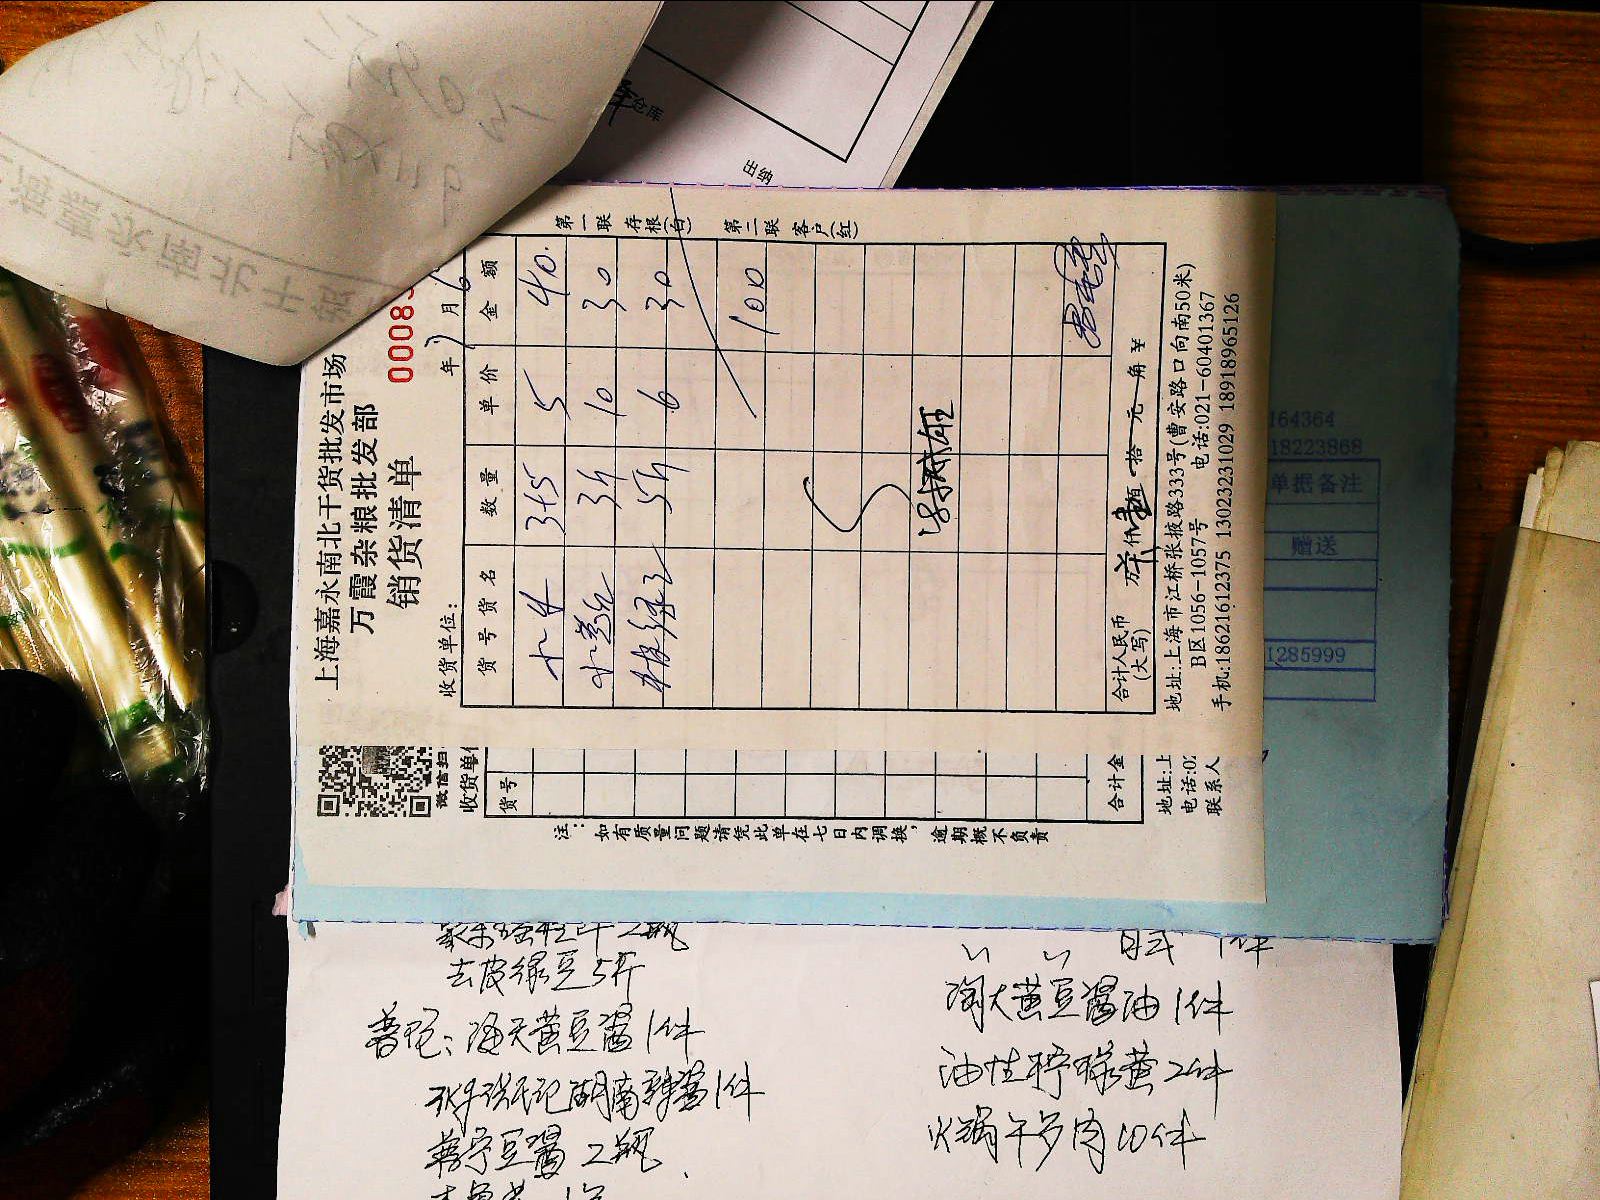 上海嘉永南北干货批发市场
万霞杂粮批发部
销货清单
00083
收货单位:
年 7 月 6
货号 货名 数量 单价 金额
小米 5 40.
小黄红 3斤 10 30
去皮绿豆 5斤 6 30
100
合计人民币
(大写)
万 仟 佰 拾 元 角 ¥
地址:上海市江桥张掖路333号(曹安路口向南50米)
B区1056-1057号 电话:021-60401367
手机:18621612375 13023231029 18918965126
第一联 存根(白) 第二联 客户(红)
微信扫
收货单位
货号
合计金
地址:上
电话:02
联系人
注:如有质量问题请凭此单在七日内调换,逾期概不负责
仓库
出纳
嘉永南北干货
164364
18223868
单据备注
赠送
1285999
2瓶
去皮绿豆5斤
海天黄豆酱1件
湖南辣酱1件
豆酱2瓶
1件
淘大黄豆酱油1件
油性柠檬黄2件
火锅午多肉10件